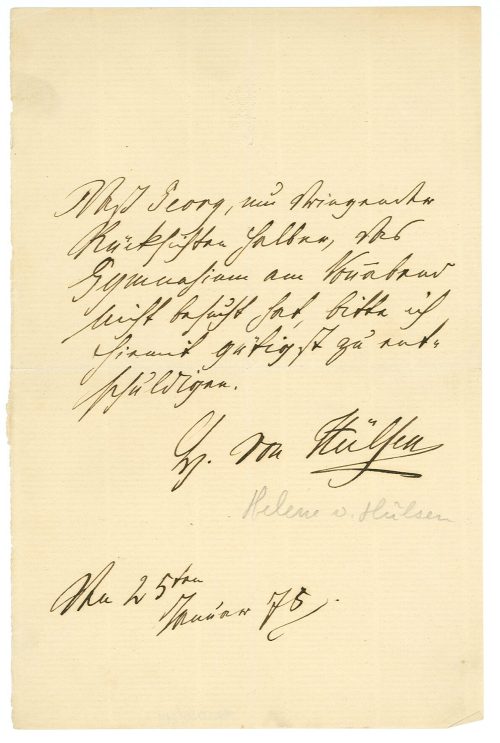 Daß Georg, nur dringender
Rücksichten halber, das
Gymnasium am Sonnabend
nicht besucht hat, bitte ich
hiermit gütigst zu ent-
schuldigen.
H. von Hülsen
Helene v. Hülsen
Den 25ten
Januar 75.